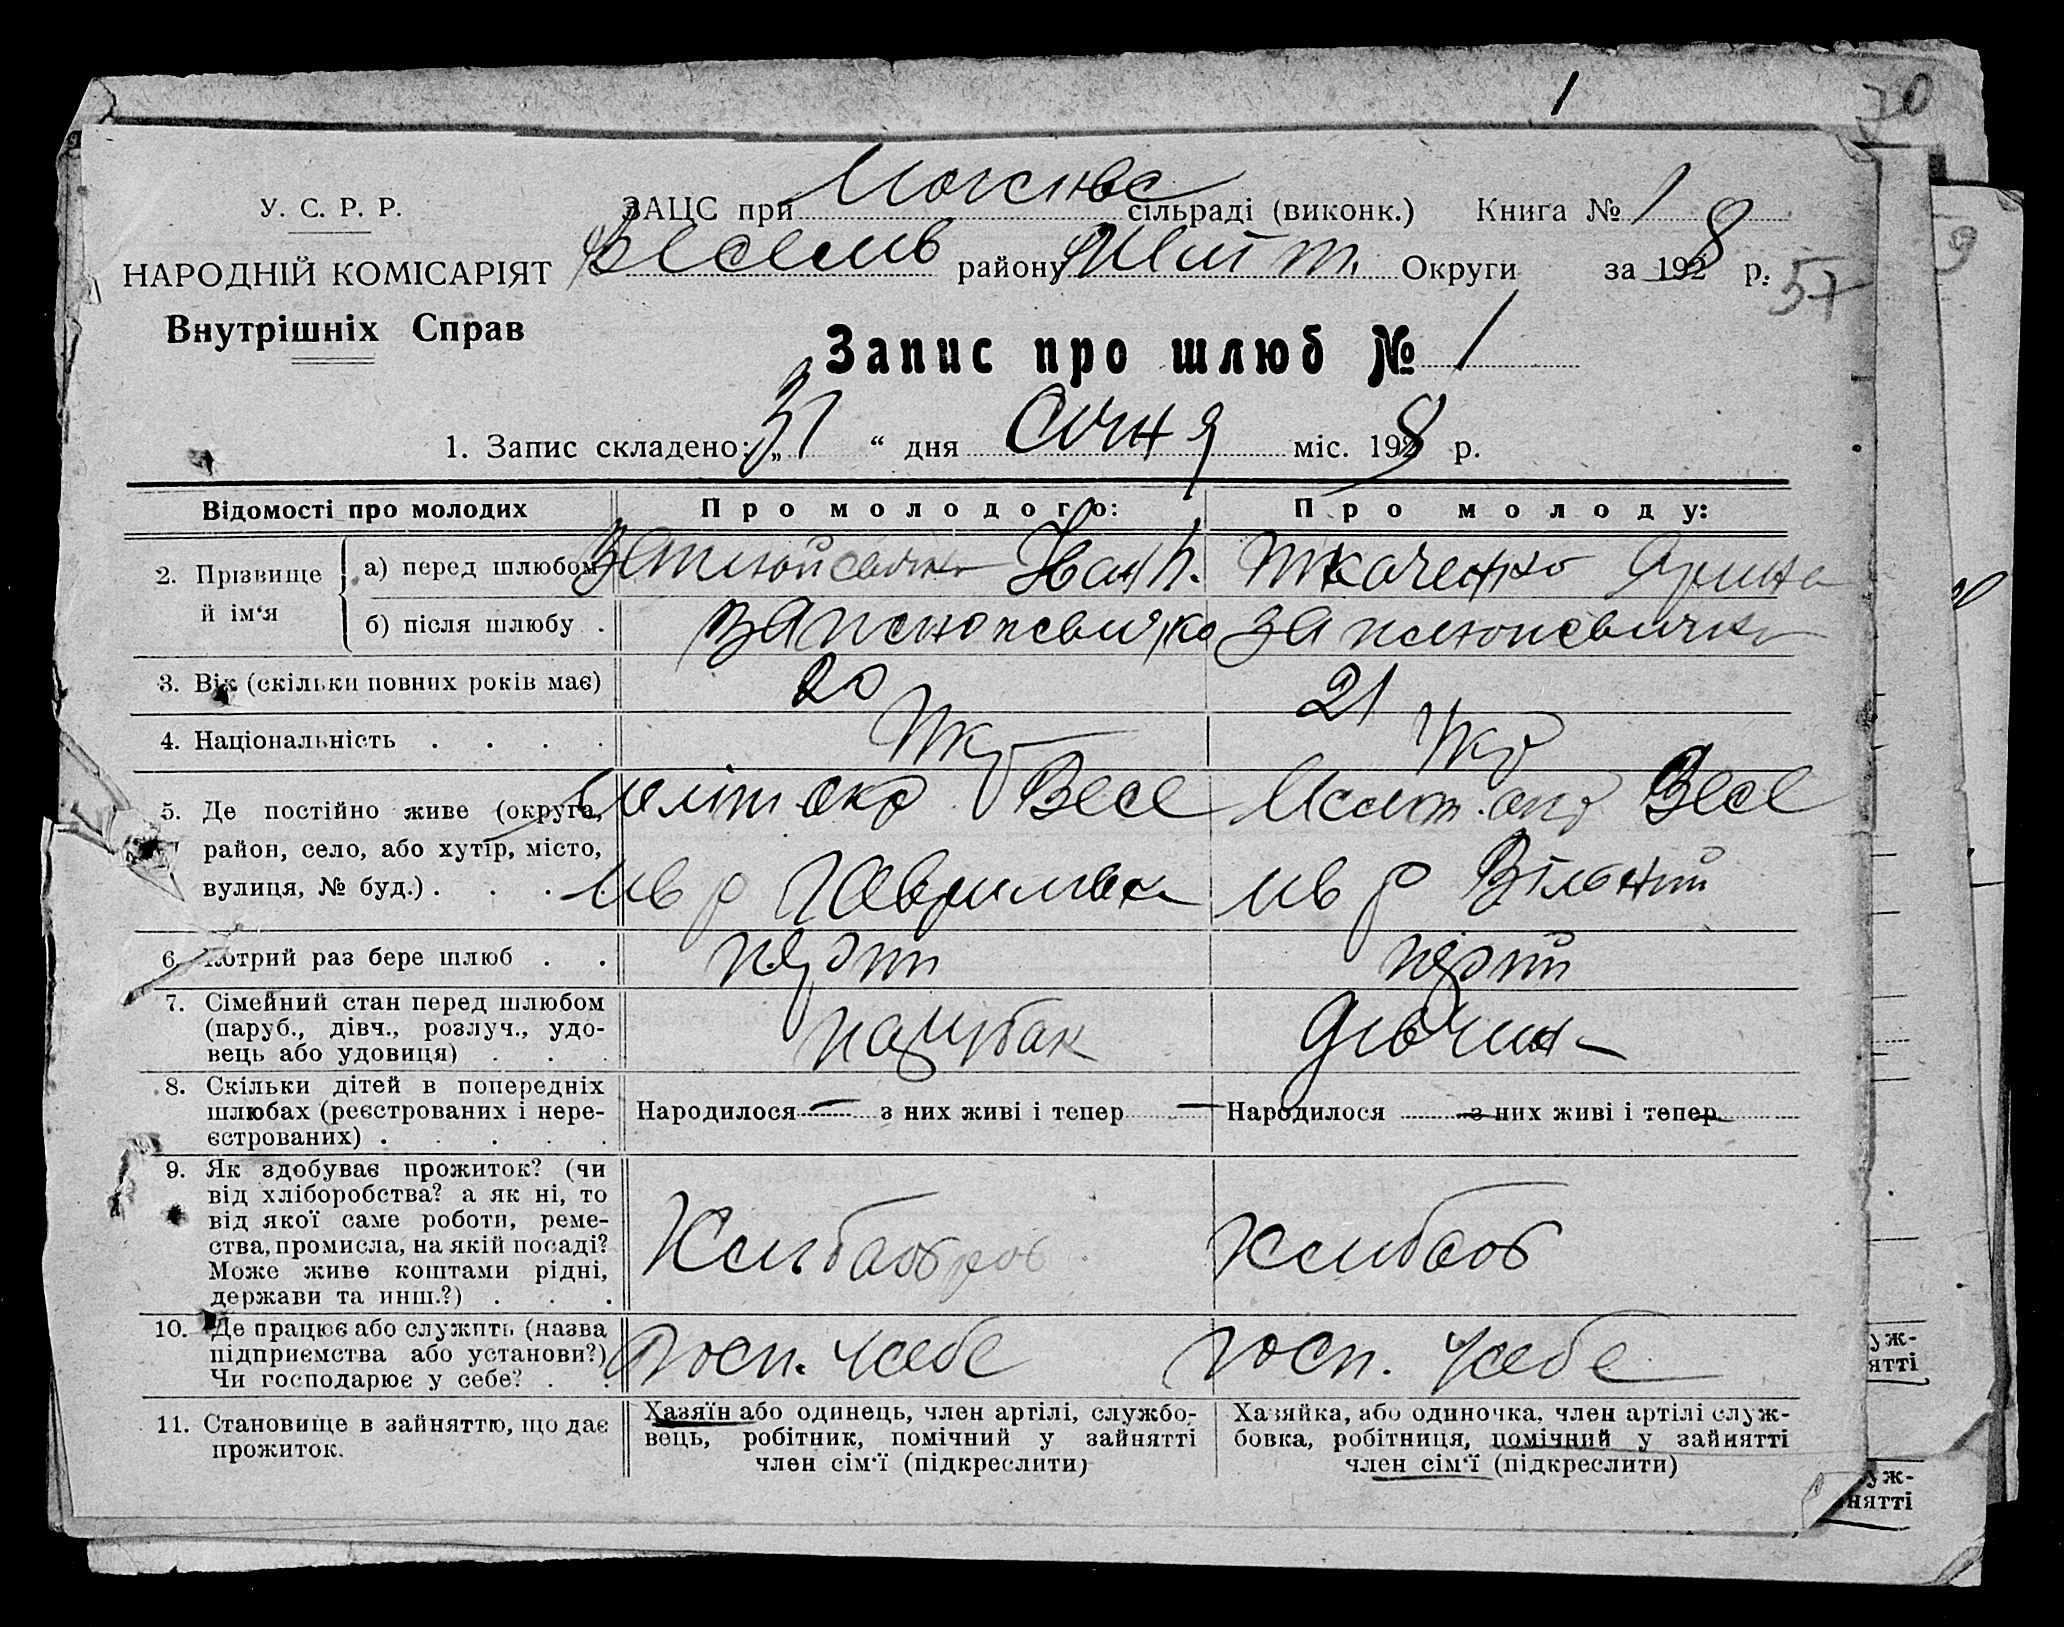 1
У. С. Р. Р.
ЗАЦС при сільраді (виконк.) Книга № 1
НАРОДНІЙ КОМІСАРІЯТ
Веселив району Меліт. Округи за 1928 р.
57
Внутрішніх Справ
Запис про шлюб № 1
1. Запис складено: „ 31 “ дня Січня міс. 1928 р.
Відомості про молодих Про молодого: Про молоду:
2. Прізвище й ім‘я а) перед шлюбом Іван Ткаченко Ярина
б) після шлюбу
3. Вік (скільки повних років має) 20 21
4. Національність Укр Укр
5. Де постійно живе (округа, Меліт окр Весе Меліт. окр Весе
район, село, або хутір, місто, лив р Гаврилівка лив р Вільний
вулиця, № буд.)
6. Котрий раз бере шлюб перший перший
7. Сімейний стан перед шлюбом
(паруб., дівч., розлуч., удо- парубак дівчина
вець або удовиця)
8. Скільки дітей в попередніх
шлюбах (реєстрованих і нере- Народилося — з них живі і тепер — Народилося — з них живі і тепер —
єстрованих)
9. Як здобуває прожиток? (чи
від хліборобства? а як ні, то
від якої саме роботи, реме-
ства, промисла, на якій посаді?
Може живе коштами рідні,
держави та инш.?)
10. Де працює або служить (назва
підприємства або установи?) госп. усебе госп. усебе
Чи господарює у себе?
11. Становище в зайняттю, що дає
прожиток.
Хазяїн або одинець, член артілі, службо-
вець, робітник, помічний у зайнятті
член сім‘ї (підкреслити)
Хазяйка, або одиночка, член артілі служ-
бовка, робітниця, помічний у зайнятті
член сім‘ї (підкреслити)
уж-
ятті
уж-
нятті